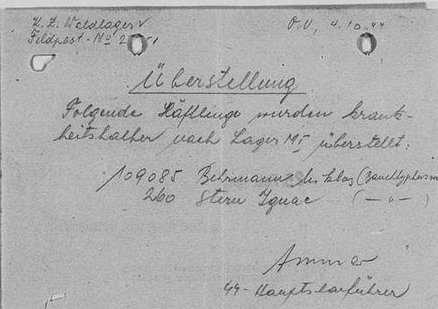 K. Z. Waldlager V
Feldpost-No
O.U., 4.10.44
Überstellung
Folgende Häftlinge wurden krank-
heitshalber nach Lager M1 überstellt:
109085 Behrmann Miklos (Bauchtyphus
260 Stern Ignac (— „ —)
SS-Hauptscharführer